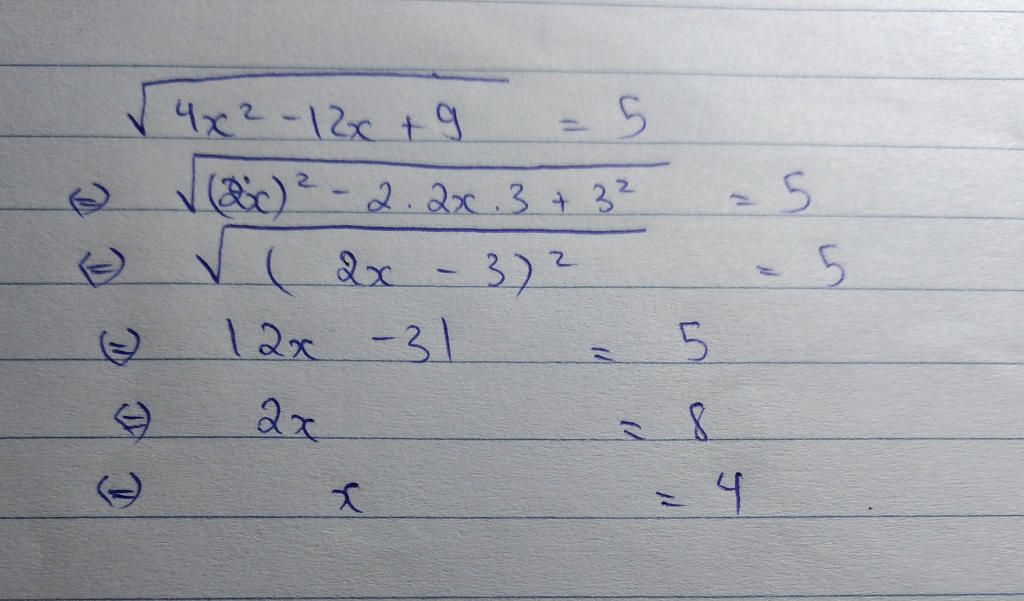 √(4x² - 12x + 9) = 5
⇔ √((2x)² - 2 . 2x . 3 + 3²) = 5
⇔ √((2x - 3)²) = 5
⇔ |2x - 3| = 5
⇔ 2x = 8
⇔ x = 4